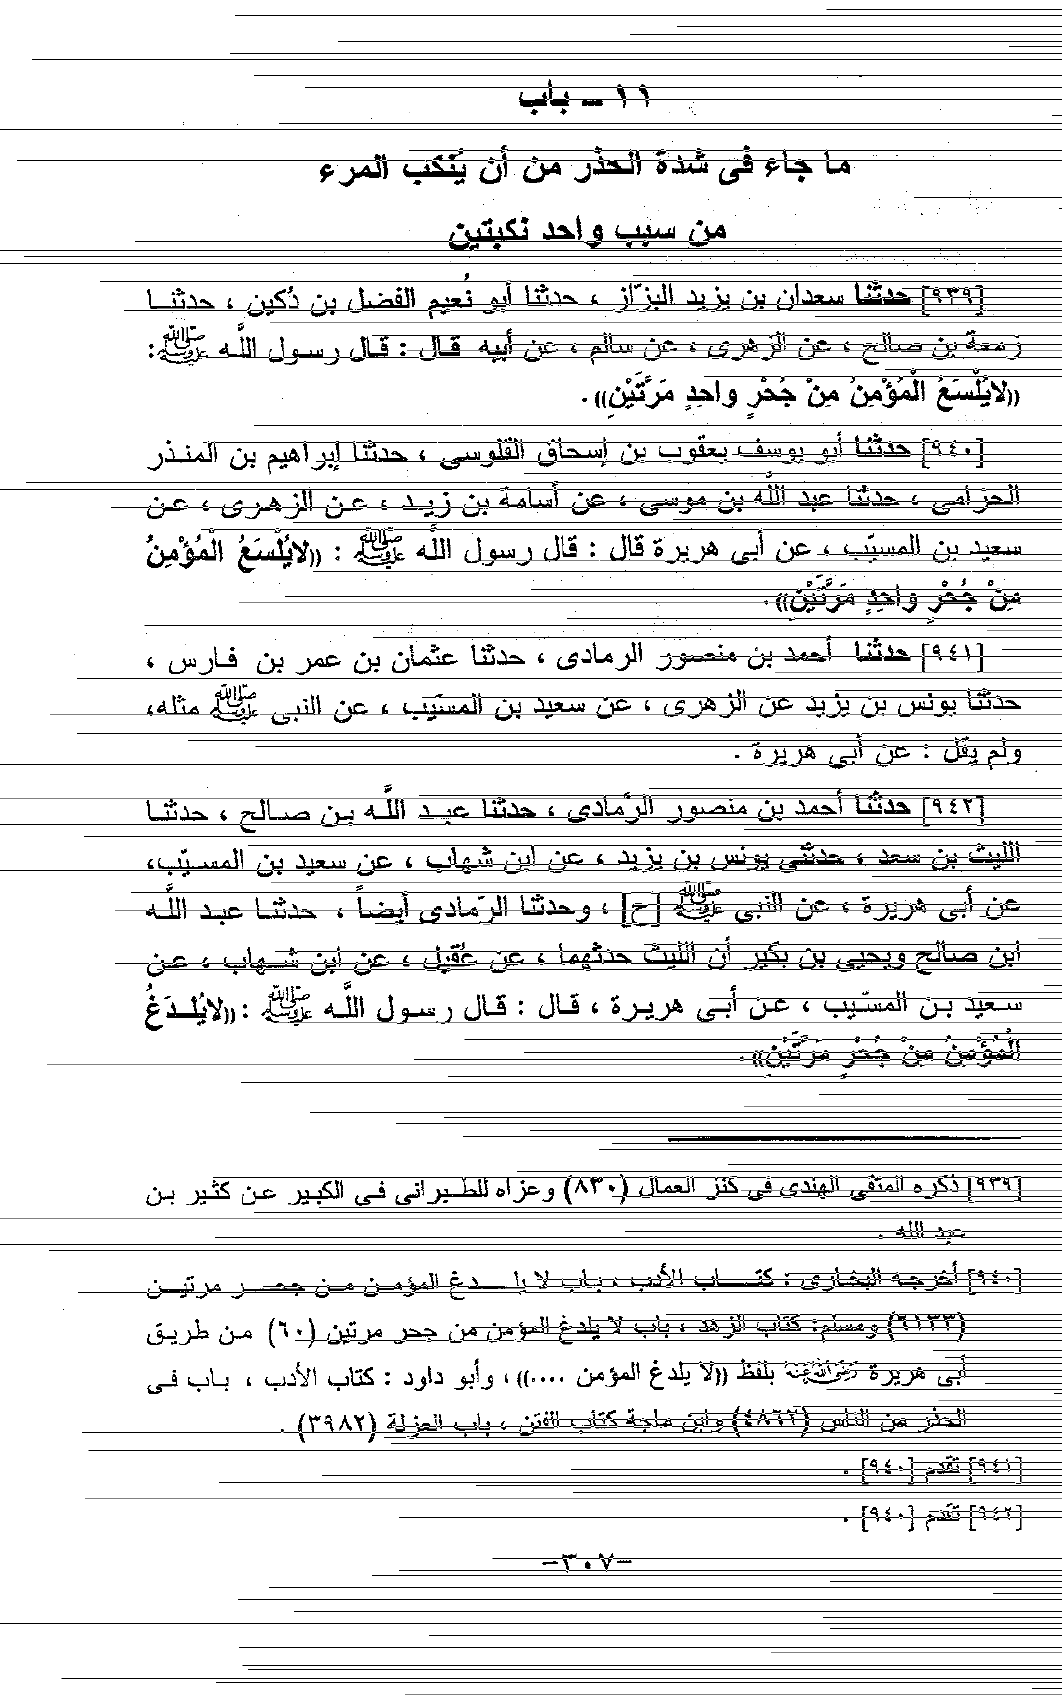 ١١ – باب
ما جاء فى شدة الحذر من أن يُنكب المرء
من سبب واحد نكبتين
[٩٣٩] حدثنا سعدان بن يزيد البزّاز ، حدثنا أبو نُعيم الفضل بن دُكين ، حدثنـا
زمعة بن صالح ، عن الزهرى ، عن سالم ، عن أبيه قـال : قـال رسـول اللَّـه ﷺ:
((لايُلْسَعُ الْمُؤْمِنُ مِنْ جُحْرٍ واحِدٍ مَرَّتَيْنِ)) .
[٩٤٠] حدثنا أبو يوسف يعقوب بن إسحاق القلوسى ، حدثنا إبراهيم بن المنذر
الحزامى ، حدثنا عبد اللَّه بن موسى ، عن أسامة بن زيـد ، عـن الزهـرى ، عـن
سعيد بن المسيّب ، عن أبى هريرة قال : قال رسول اللَّه ﷺ : ((لايُلْسَعُ الْمُؤْمِنُ
مِنْ جُحْرٍ واحِدٍ مَرَّتَيْنِ)) .
[٩٤١] حدثنا أحمد بن منصور الرمادى ، حدثنا عثمان بن عمر بن فـارس ،
حدثنا يونس بن يزيد عن الزهرى ، عن سعيد بن المسيّب ، عن النبى ﷺ مثله،
ولم يقل : عن أبى هريرة .
[٩٤٢] حدثنا أحمد بن منصور الرّمادى ، حدثنا عبـد اللَّـه بـن صـالح ، حدثنـا
الليث بن سعد ، حدثنى يونس بن يزيد ، عن ابن شهاب ، عن سعيد بن المسـيّب،
عن أبى هريرة ، عن النبى ﷺ [ح] ، وحدثنا الرّمادى أيضاً ، حدثنـا عبـد اللَّـه
ابن صالح ويحيى بن بكير أن الليث حدثهما ، عن عُقيل ، عن ابن شـهاب ، عـن
سـعيد بـن المسـيّب ، عـن أبـى هريـرة ، قـال : قـال رسـول اللَّـه ﷺ :((لايُلـدَغُ
الْمُؤْمِنُ مِنْ جُحْرٍ مَرَّتَيْنِ)) .
[٩٣٩] ذكره المتقى الهندى فى كنز العمال (٨٣٠) وعزاه للطـبرانى فـى الكبـير عـن كثـير بـن
عبد الله .
[٩٤٠] أخرجه البخارى : كتـاب الأدب ، بـاب لا يلـدغ المؤمـن مـن جحـر مرتيـن
(٦١٣٣) ومسلم: كتاب الزهد ، باب لا يلدغ المؤمن من جحر مرتين (٦٠) مـن طريـق
أبى هريرة رَضِيَ اللهُ عَنْهُ بلفظ ((لا يلدغ المؤمن ....)) ، وأبو داود : كتاب الأدب ، بـاب فـى
الحذر من الناس (٤٨٦٢) وابن ماجة كتاب الفتن ، باب العزلة (٣٩٨٢) .
[٩٤١] تقدم [٩٤٠] .
[٩٤٢] تقدم [٩٤٠] .
-٣٠٧-